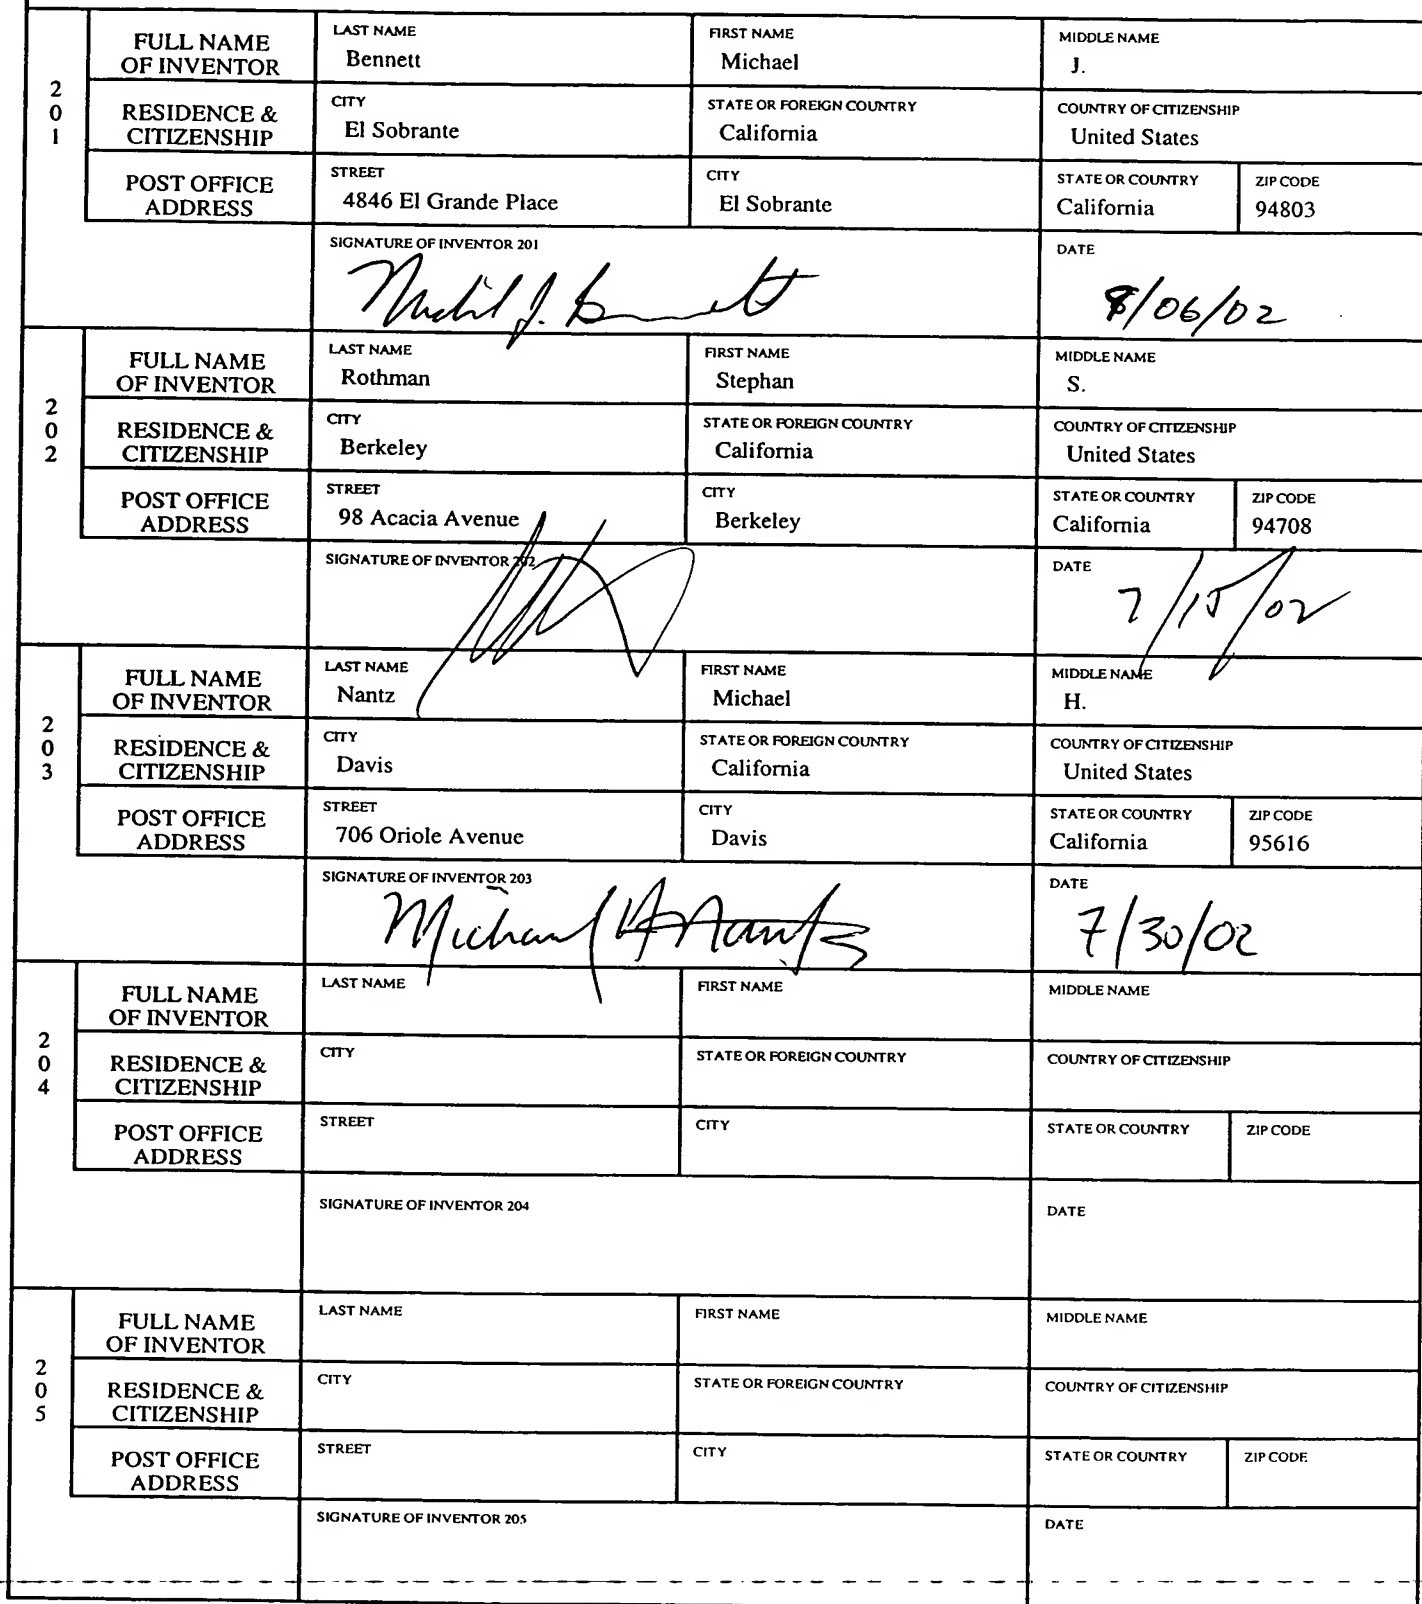 201
FULL NAME OF INVENTOR
LAST NAME
Bennett
FIRST NAME
Michael
MIDDLE NAME
J.
RESIDENCE & CITIZENSHIP
CITY
El Sobrante
STATE OR FOREIGN COUNTRY
California
COUNTRY OF CITIZENSHIP
United States
POST OFFICE ADDRESS
STREET
4846 El Grande Place
CITY
El Sobrante
STATE OR COUNTRY
California
ZIP CODE
94803
SIGNATURE OF INVENTOR 201
Michael J. Bennett
DATE
8/06/02
202
FULL NAME OF INVENTOR
LAST NAME
Rothman
FIRST NAME
Stephan
MIDDLE NAME
S.
RESIDENCE & CITIZENSHIP
CITY
Berkeley
STATE OR FOREIGN COUNTRY
California
COUNTRY OF CITIZENSHIP
United States
POST OFFICE ADDRESS
STREET
98 Acacia Avenue
CITY
Berkeley
STATE OR COUNTRY
California
ZIP CODE
94708
SIGNATURE OF INVENTOR 202
DATE
7/15/02
203
FULL NAME OF INVENTOR
LAST NAME
Nantz
FIRST NAME
Michael
MIDDLE NAME
H.
RESIDENCE & CITIZENSHIP
CITY
Davis
STATE OR FOREIGN COUNTRY
California
COUNTRY OF CITIZENSHIP
United States
POST OFFICE ADDRESS
STREET
706 Oriole Avenue
CITY
Davis
STATE OR COUNTRY
California
ZIP CODE
95616
SIGNATURE OF INVENTOR 203
Michael H Nantz
DATE
7/30/02
204
FULL NAME OF INVENTOR
LAST NAME
FIRST NAME
MIDDLE NAME
RESIDENCE & CITIZENSHIP
CITY
STATE OR FOREIGN COUNTRY
COUNTRY OF CITIZENSHIP
POST OFFICE ADDRESS
STREET
CITY
STATE OR COUNTRY
ZIP CODE
SIGNATURE OF INVENTOR 204
DATE
205
FULL NAME OF INVENTOR
LAST NAME
FIRST NAME
MIDDLE NAME
RESIDENCE & CITIZENSHIP
CITY
STATE OR FOREIGN COUNTRY
COUNTRY OF CITIZENSHIP
POST OFFICE ADDRESS
STREET
CITY
STATE OR COUNTRY
ZIP CODE
SIGNATURE OF INVENTOR 205
DATE